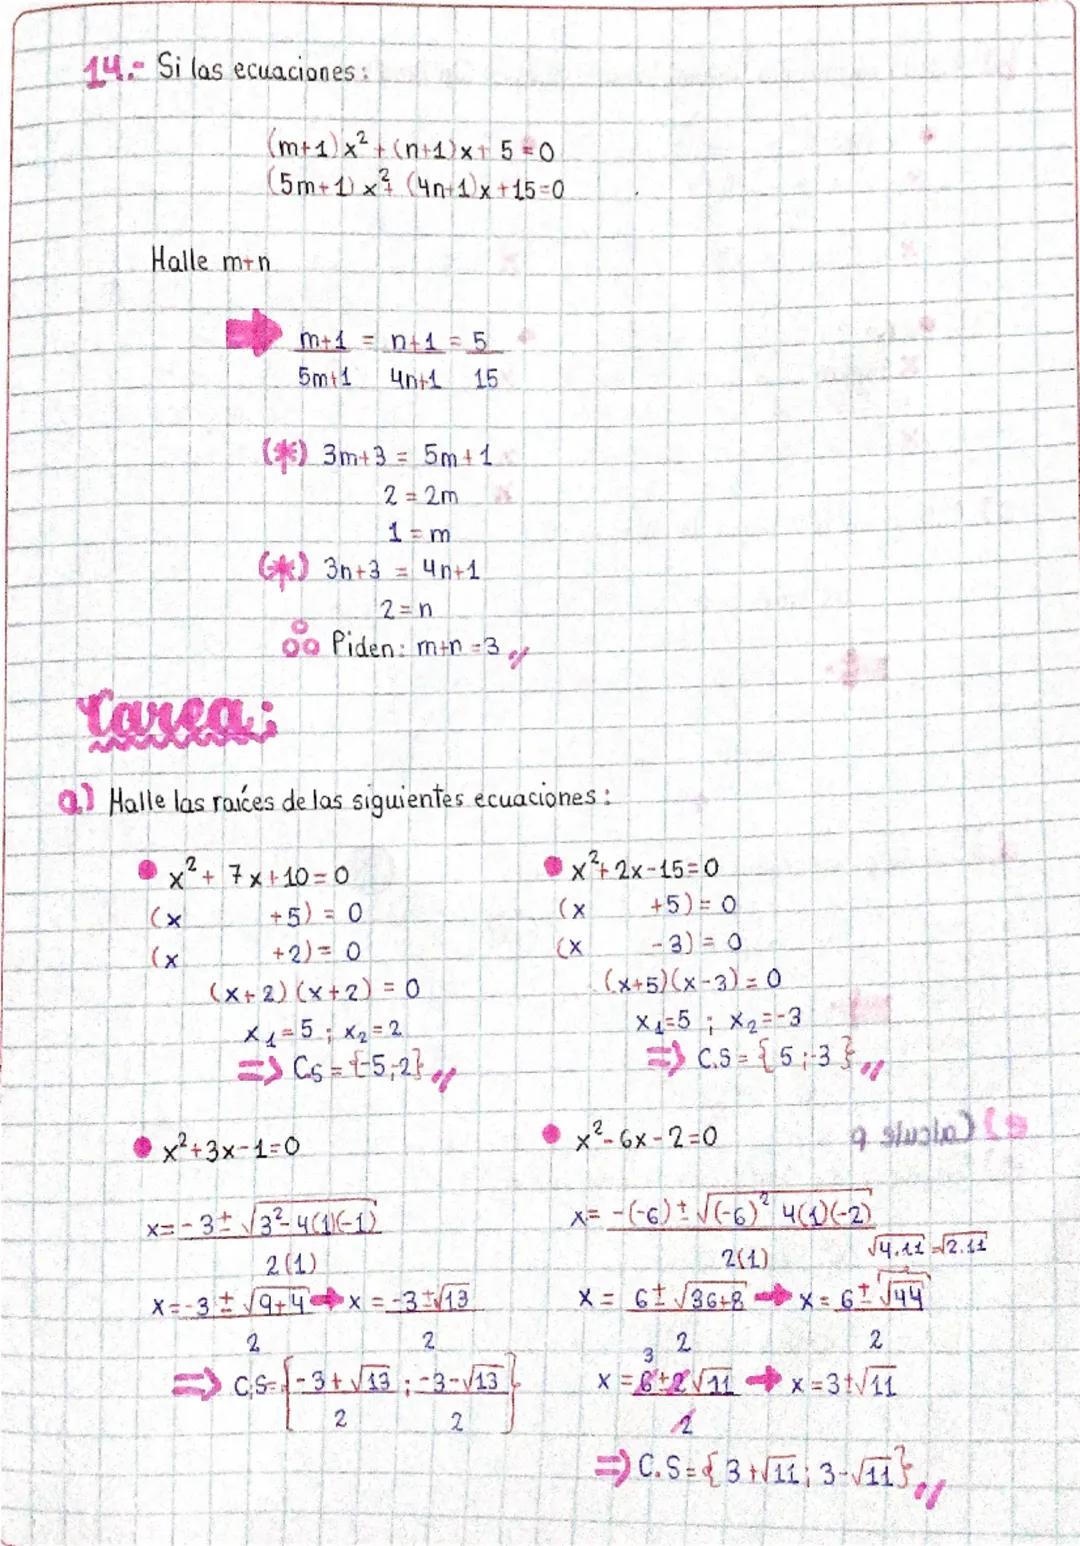 14.- Si las ecuaciones:
(m+1)x²+(n+1)x+5=0
(5m+1)x²+(4n+1)x+15=0
Halle m+n
m+1 = n+1 = 5
5m+1 4n+1 15
(*) 3m+3 = 5m+1
2=2m
1=m
(*) 3n+3 = 4n+1
2=n
Piden: m+n=3
Tarea:
a.) Halle las raíces de las siguientes ecuaciones:
x²+7x+10=0
(x +5)=0
(x +2)=0
(x+2)(x+2)=0
x₁=5; x₂=2
=> C.S={-5;2}
x²+2x-15=0
(x +5)=0
(x -3)=0
(x+5)(x-3)=0
x₁=5; x₂=-3
=> C.S={5;-3}
x²+3x-1=0
x=-3±√3²-4(1)(-1)
2(1)
x=-3±√9+4 x=-3±√13
2 2
=> C.S={-3+√13;-3-√13}
2 2
x²-6x-2=0
x=-(-6)±√(-6)² 4(1)(-2)
2(1) √4.11=√2.11
x=6±√36+8 x=6±√44
2 2
3
x=6±2√11 x=3±√11
2
=> C.S={3+√11;3-√11}
e) Calcule p